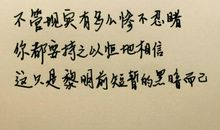 不管现实有多么惨不忍睹
你都要持之以恒地相信
这只是黎明前短暂的黑暗而已